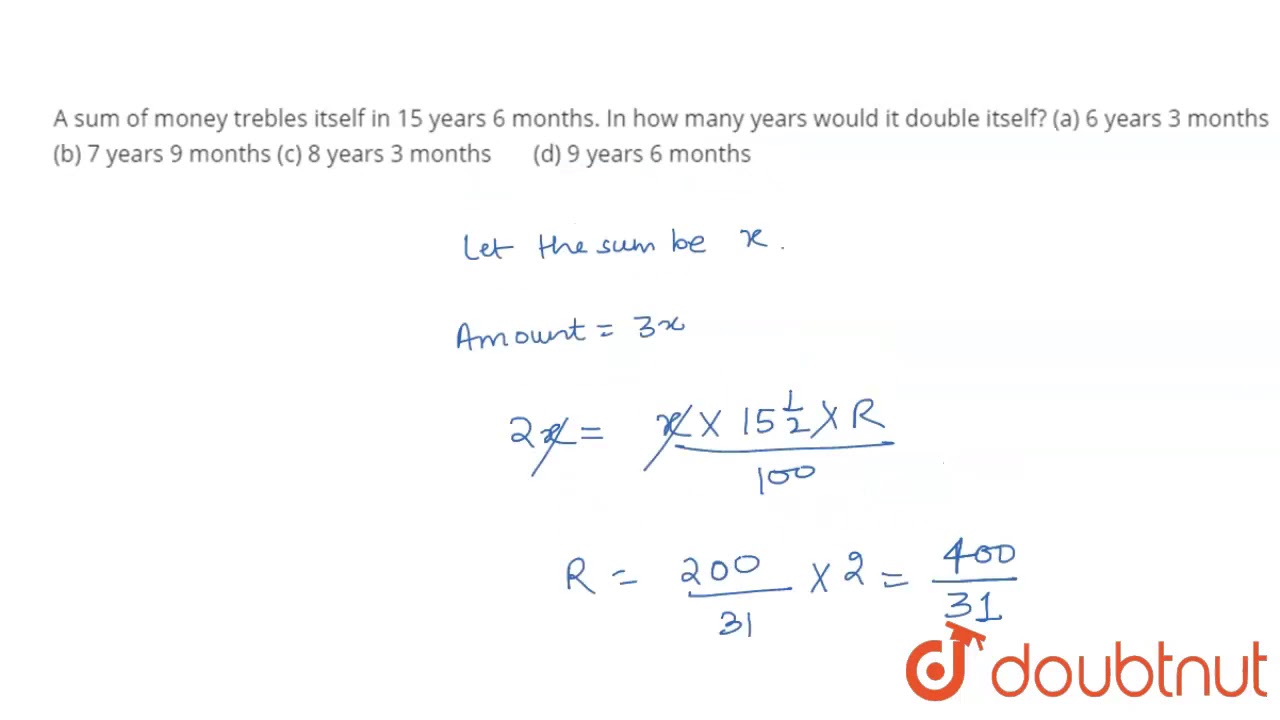 A sum of money trebles itself in 15 years 6 months. In how many years would it double itself? (a) 6 years 3 months
(b) 7 years 9 months (c) 8 years 3 months (d) 9 years 6 months
Let the sum be x.
Amount = 3x
2x = x × 15 1/2 × R / 100
R = 200/31 × 2 = 400/31
doubtnut